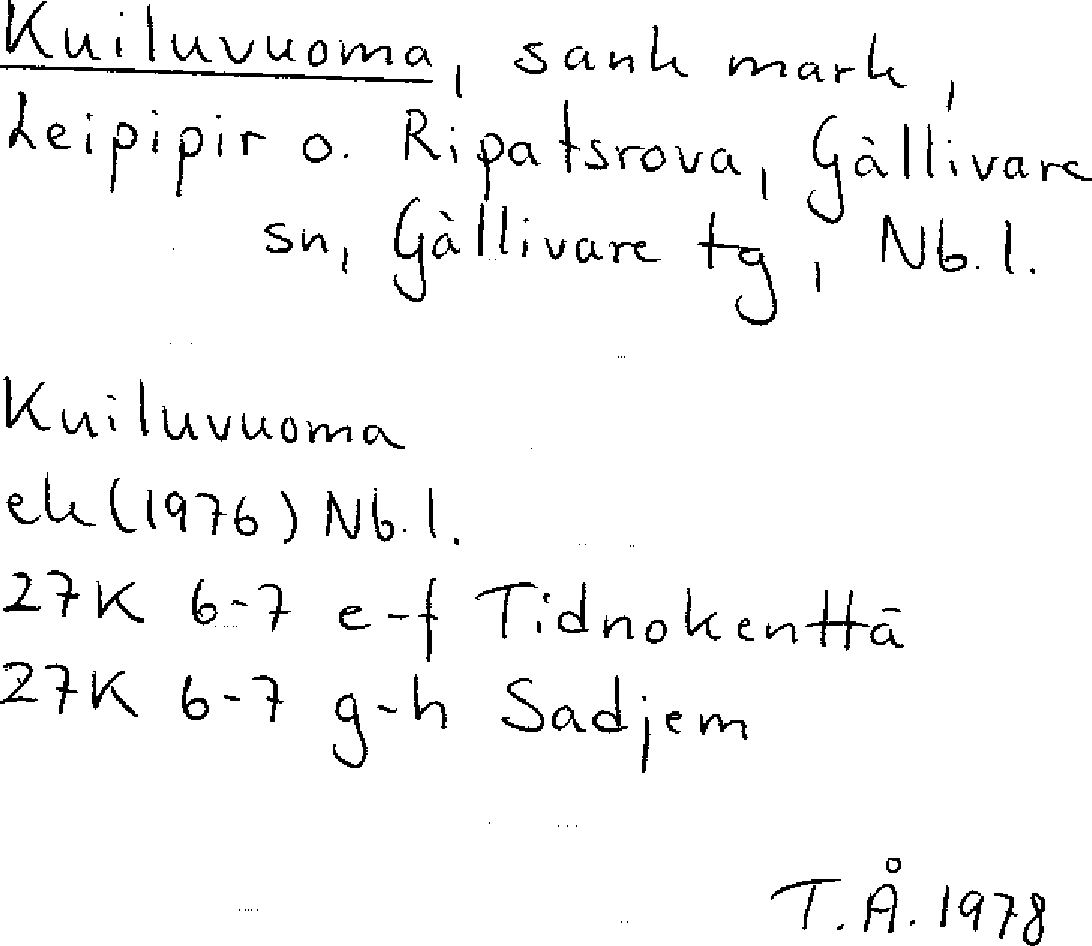 Kuiluvuoma, sank mark,
Leipipir o. Ripatsrova, Gällivare
sn, Gällivare tg, Nb. l.
Kuiluvuoma
ek (1976) Nb. l.
27K 6-7 e-f Tidnokenttä
27K 6-7 g-h Sadjem
T. Å. 1978